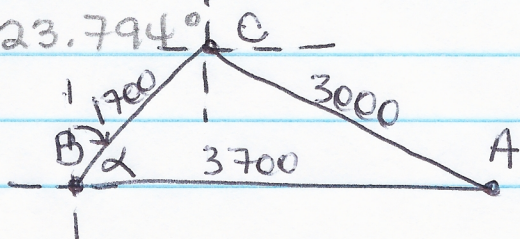 23.794° C
1700
3000
B α 3700 A